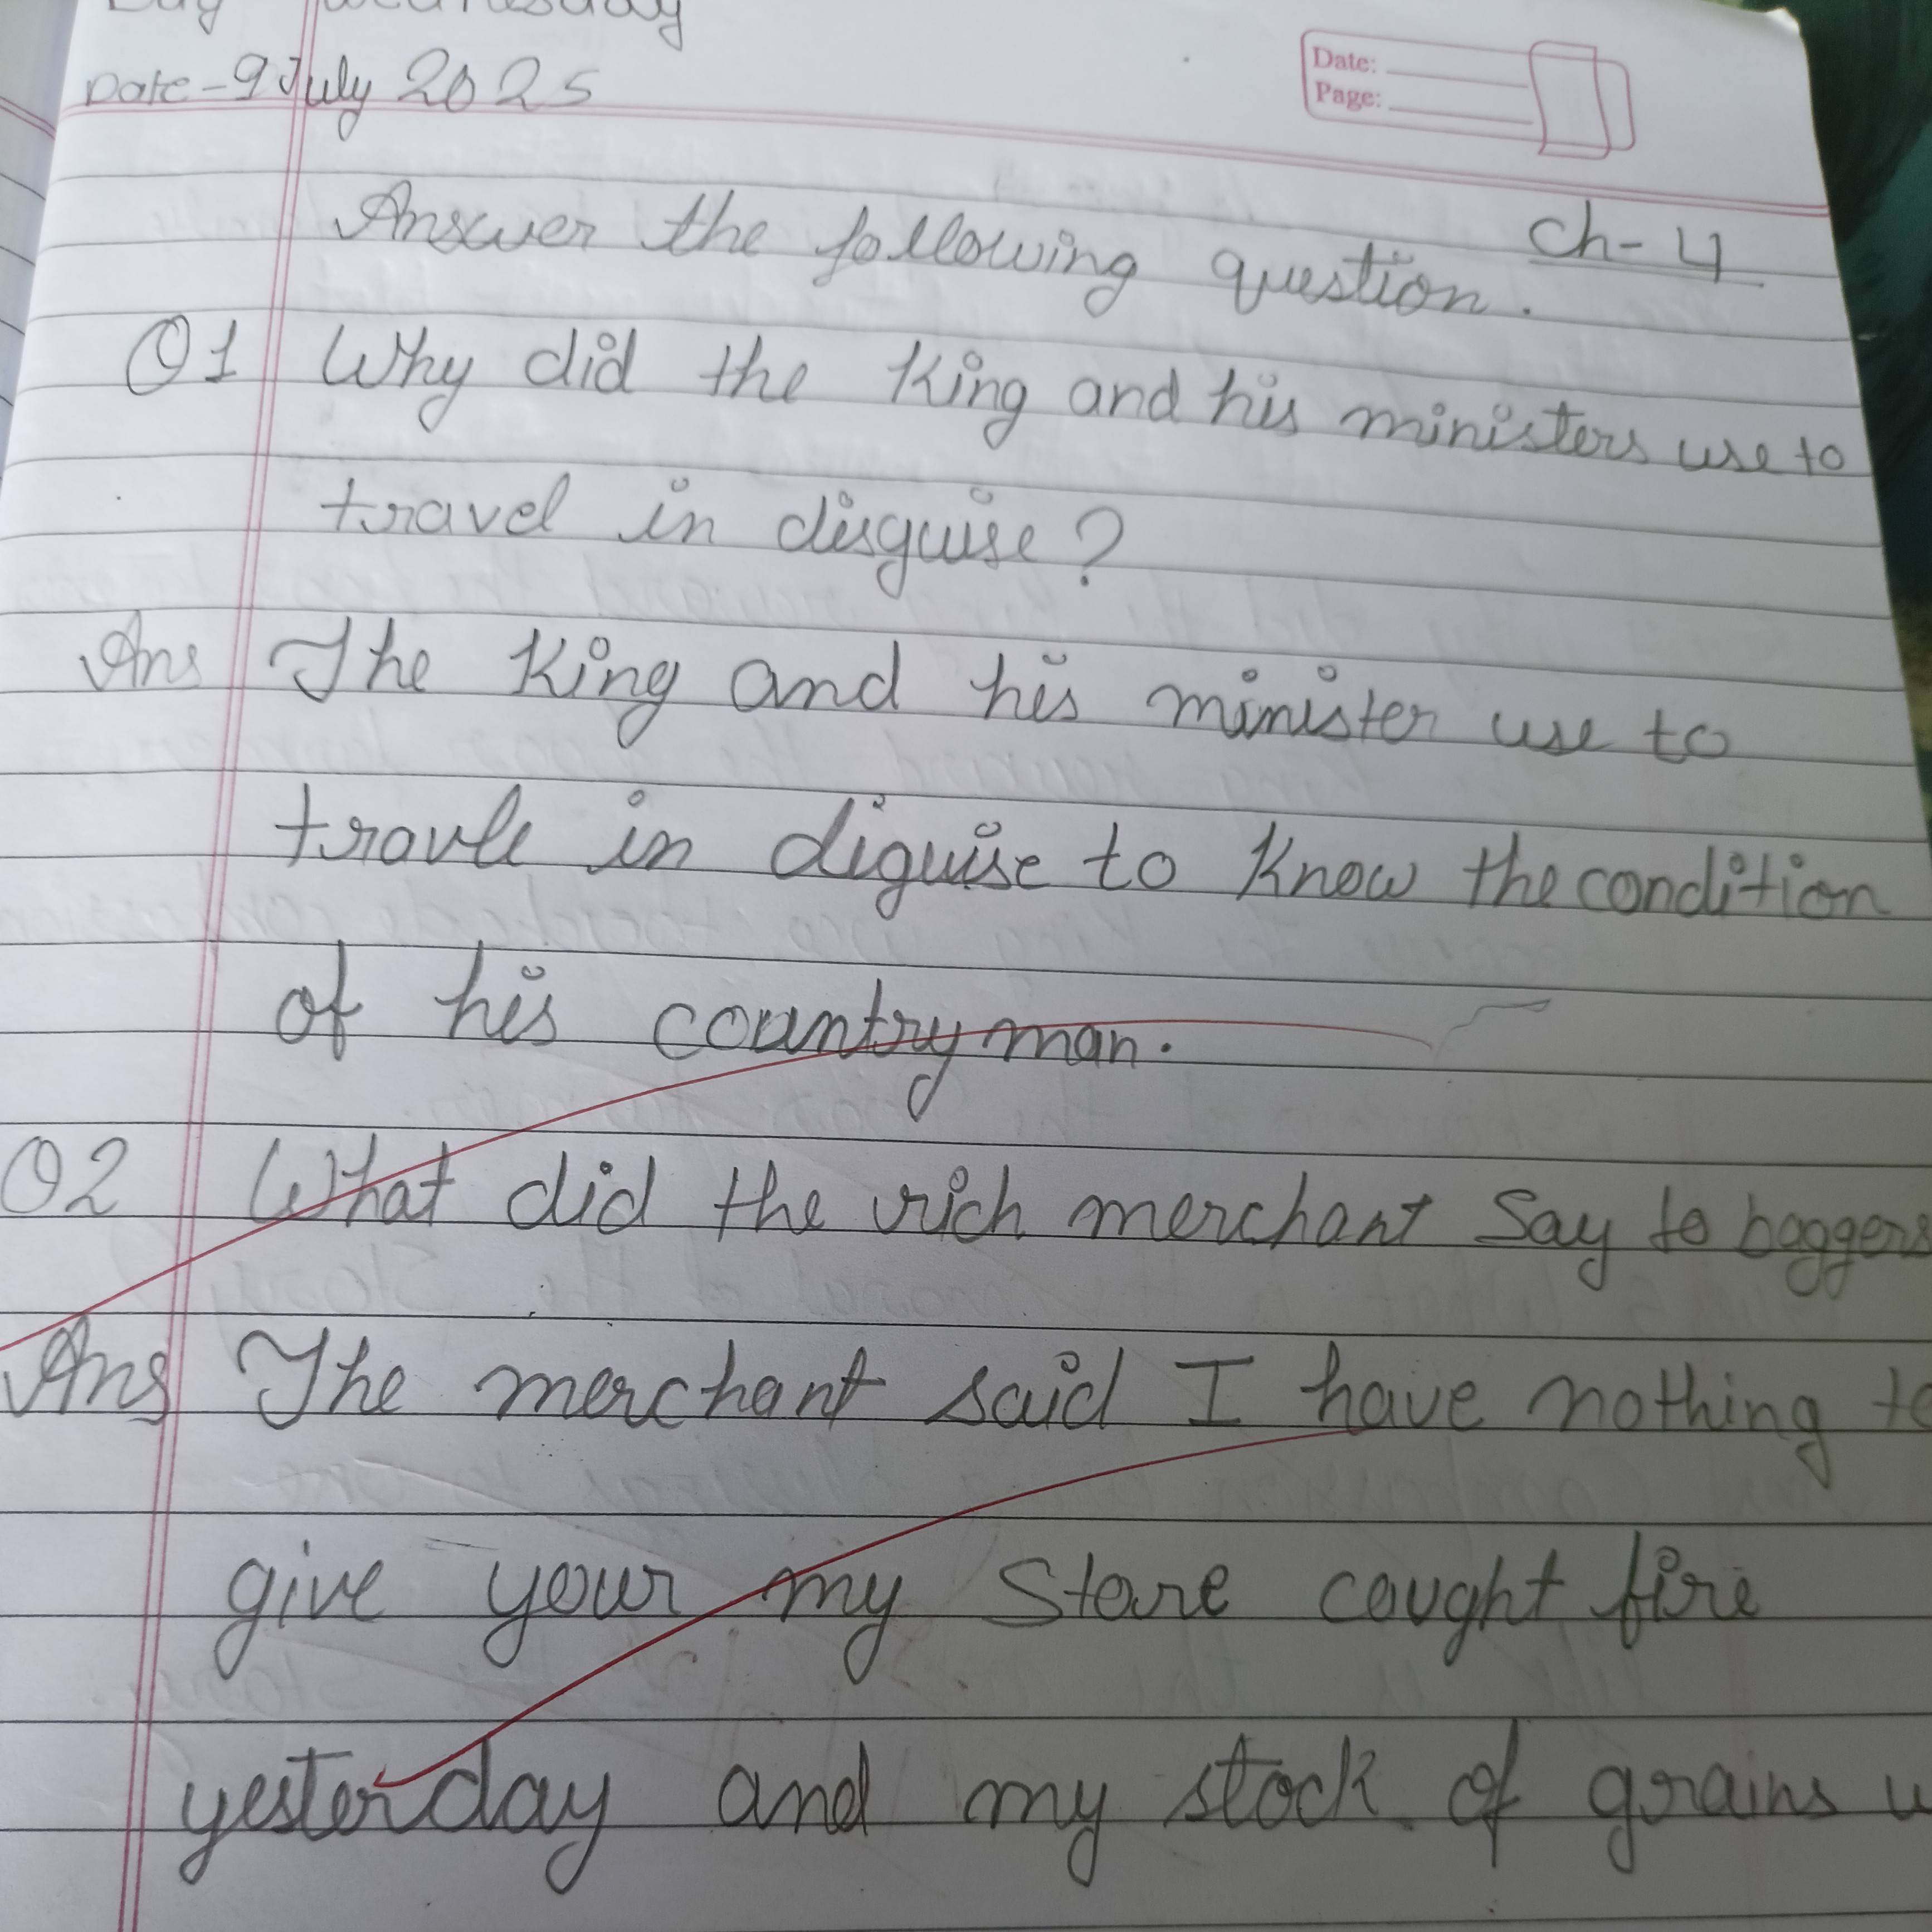 Day Wednesday
Date - 9 July 2025
Date:
Page:
Ch-4
Answer the following question.
Q1 Why did the King and his ministers use to
travel in disguise?
Ans The King and his minister use to
travle in diguise to Know the condition
of his countryman.
Q2 What did the rich merchant Say to baggers
Ans The merchant said I have nothing to
give your my Store caught fire
yesterday and my stock of grains